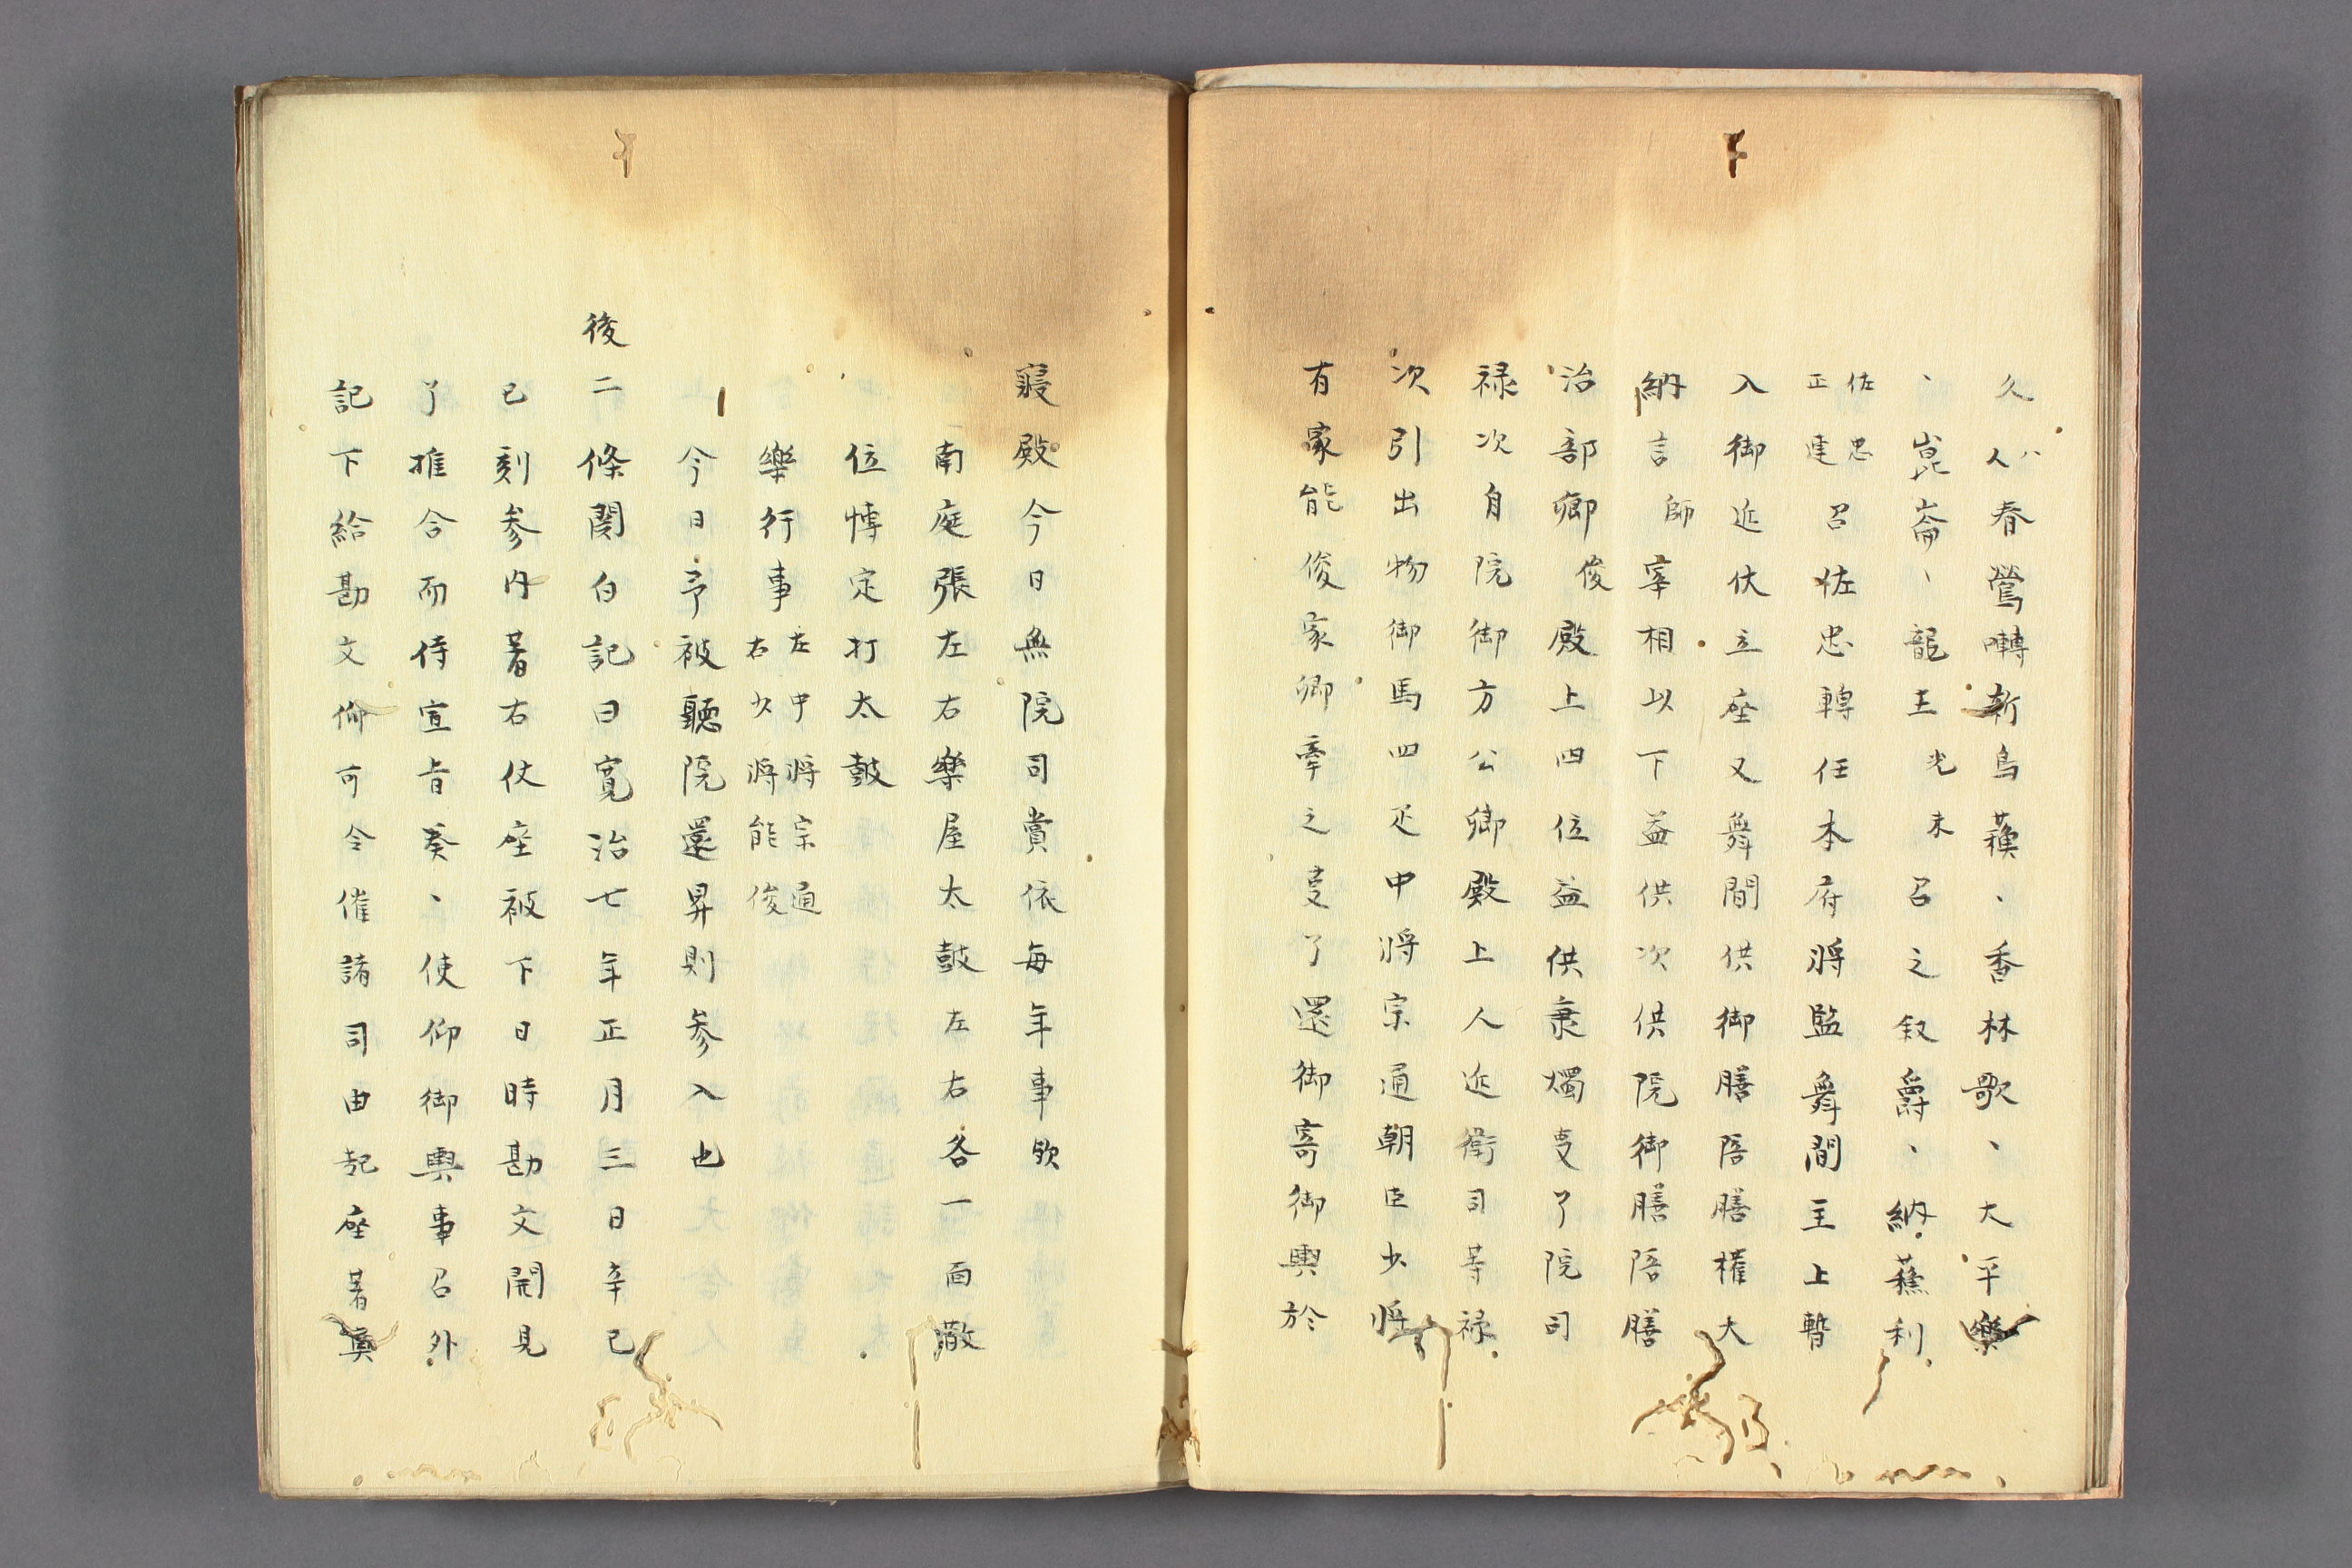 久人八春鶯囀新鳥蘓、香林歌、大平樂
、崑崙、龍王光末召之叙爵、納蘓利
佐忠正連召佐忠轉任本府將監舞間主上暫
入御近伏立座又舞間供御膳陪膳權大
納言師宰相以下益供次供院御膳陪膳
治部卿俊殿上四位益供秉燭叓了院司
禄次自院御方公卿殿上人近衛司等禄
次引出物御馬四疋中將宗通朝臣少將
有家能俊家卿牽之叓了還御寄御輿於
寢殿今日無院司賞依每年事欤
南庭張左右樂屋太鼓左右各一面散
位愽定打太鼓
樂行事左中將宗通右少將能俊
今日予被聽院還昇則參入也
後二條関白記曰寛治七年正月三日辛巳
巳刻参内著右仗座被下日時勘文開見
了推合而侍宣旨奏、使仰御輿事召外
記下給勘文仰可令催諸司由起座著奧